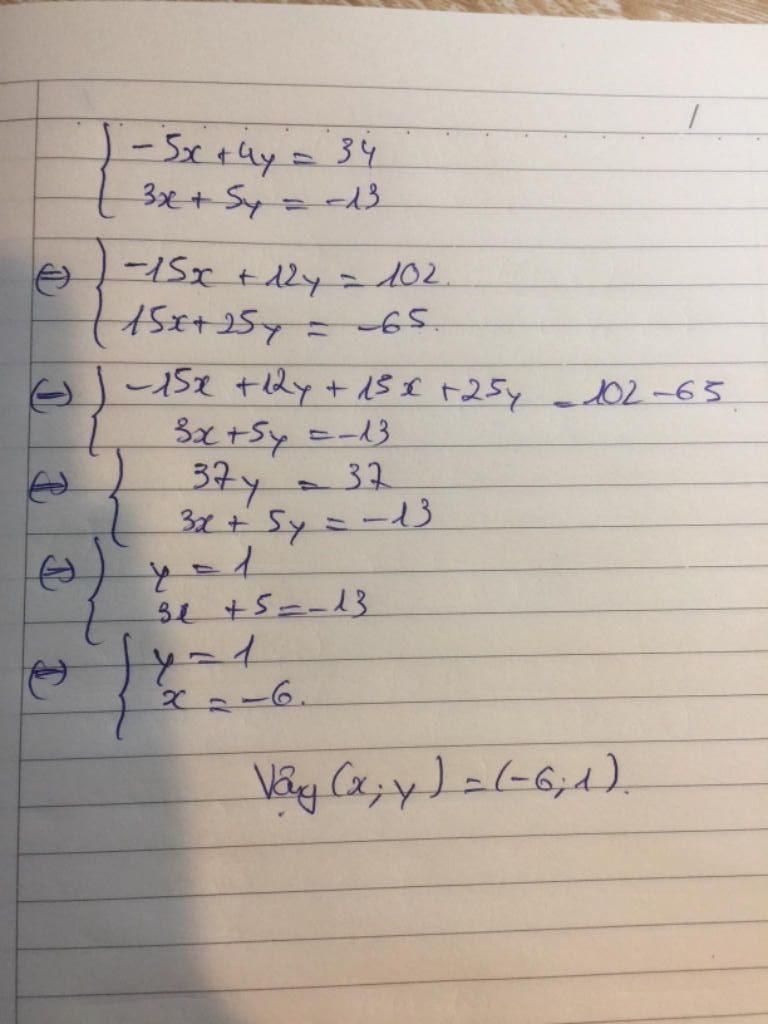 -5x + 4y = 34
3x + 5y = -13
⇔ -15x + 12y = 102.
15x + 25y = -65.
⇔ -15x + 12y + 15x + 25y = 102 - 65
3x + 5y = -13
⇔ 37y = 37
3x + 5y = -13
⇔ y = 1
3x + 5 = -13
⇔ y = 1
x = -6.
Vậy (x; y) = (-6; 1).